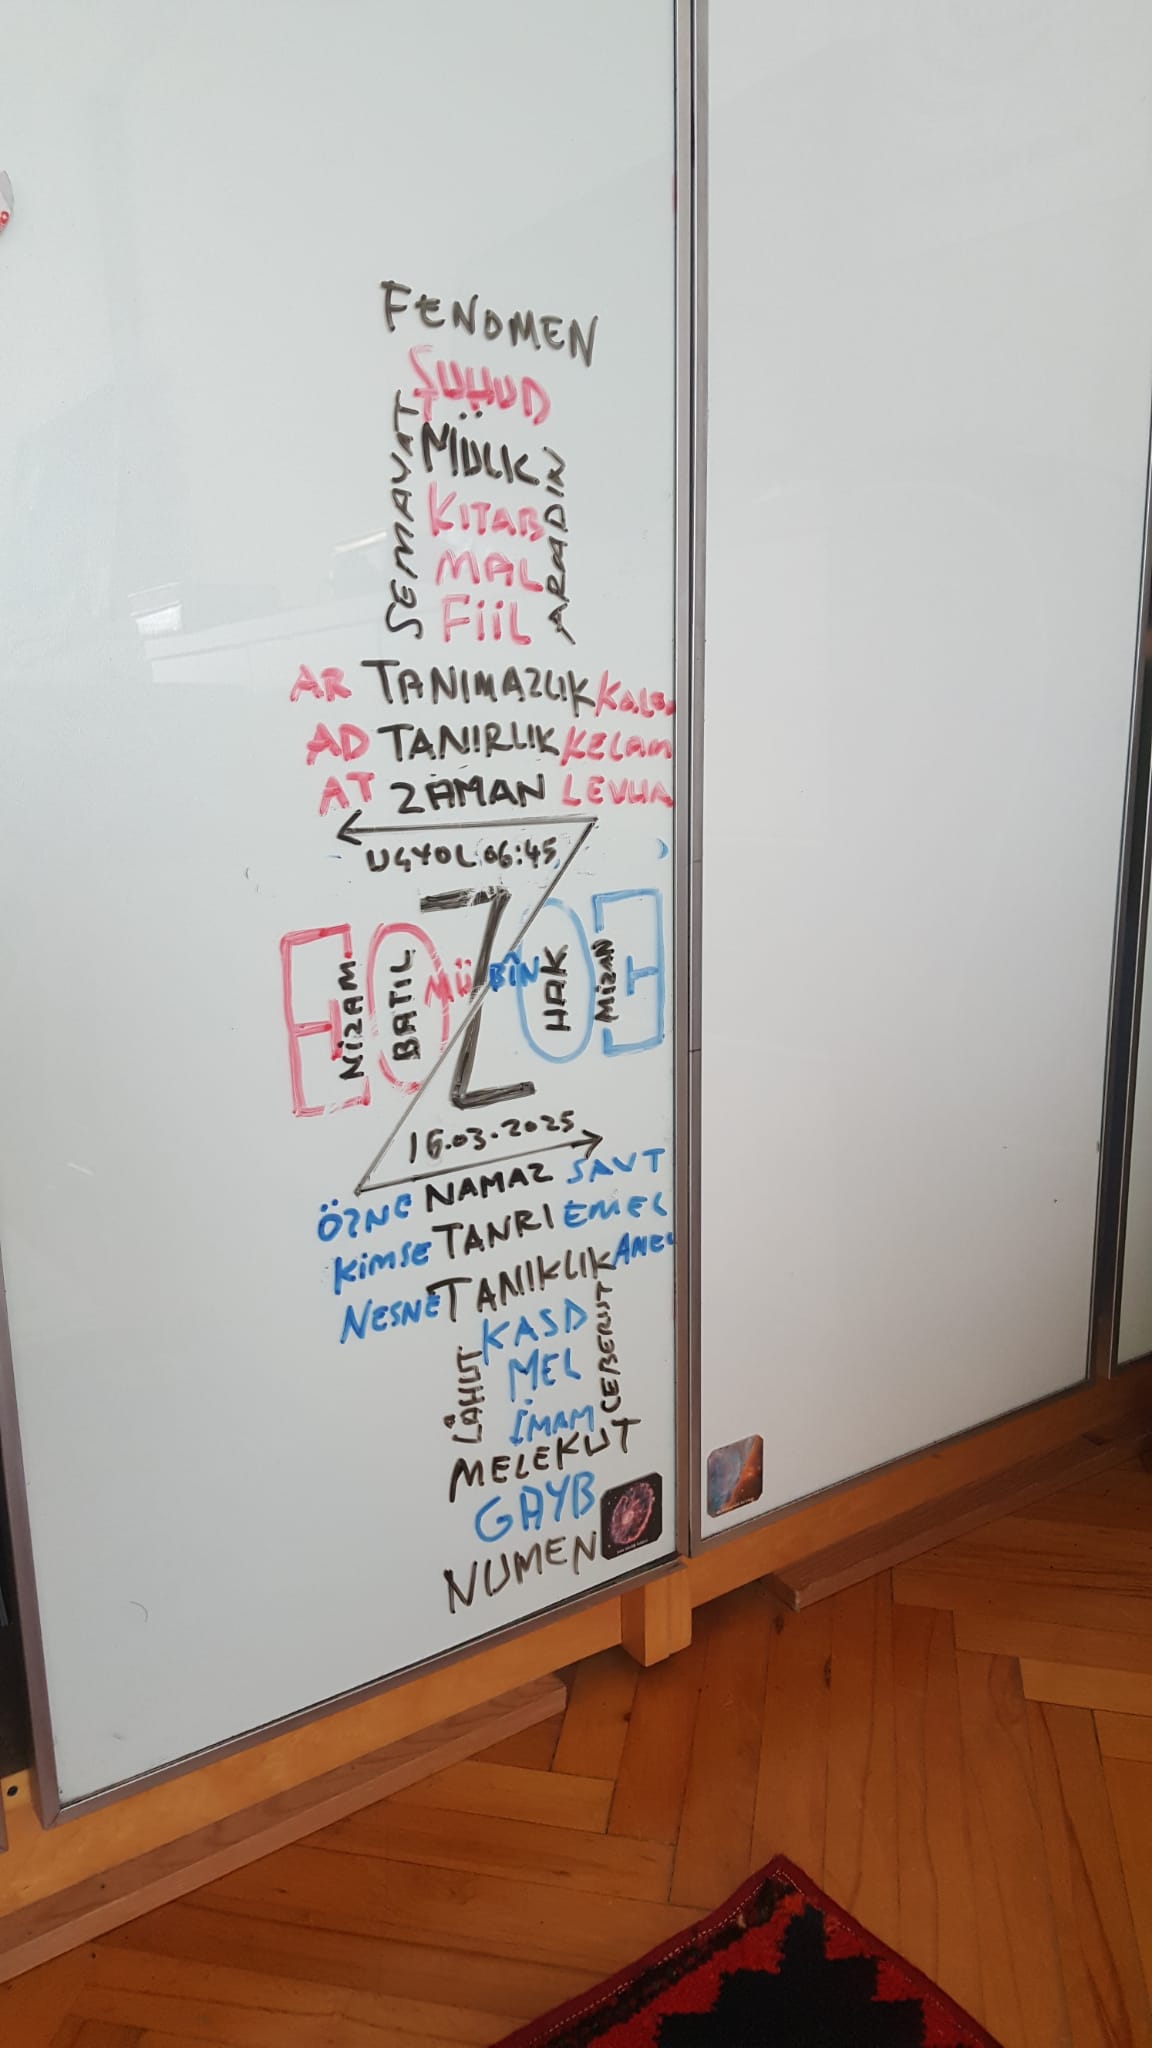 FENOMEN
ŞUHUD
MÜLK
SEMAVAT
ARADIN
KITAB
MAL
FiiL
AR TANIMAZLIK
AD TANIRLIK KELAM
AT ZAMAN LEVHA
UÇYOL 06:45
Z
E NİZAM
O BATIL
MÜBİN
HAK O
MİZAN E
16.03.2025
ÖZNE NAMAZ SAVT
KİMSE TANRI EMEL
NESNE TANIKLIK
KASD
LÂHUT
CEBERUT
MEL
İMAM
MELEKUT
GAYB
NUMEN